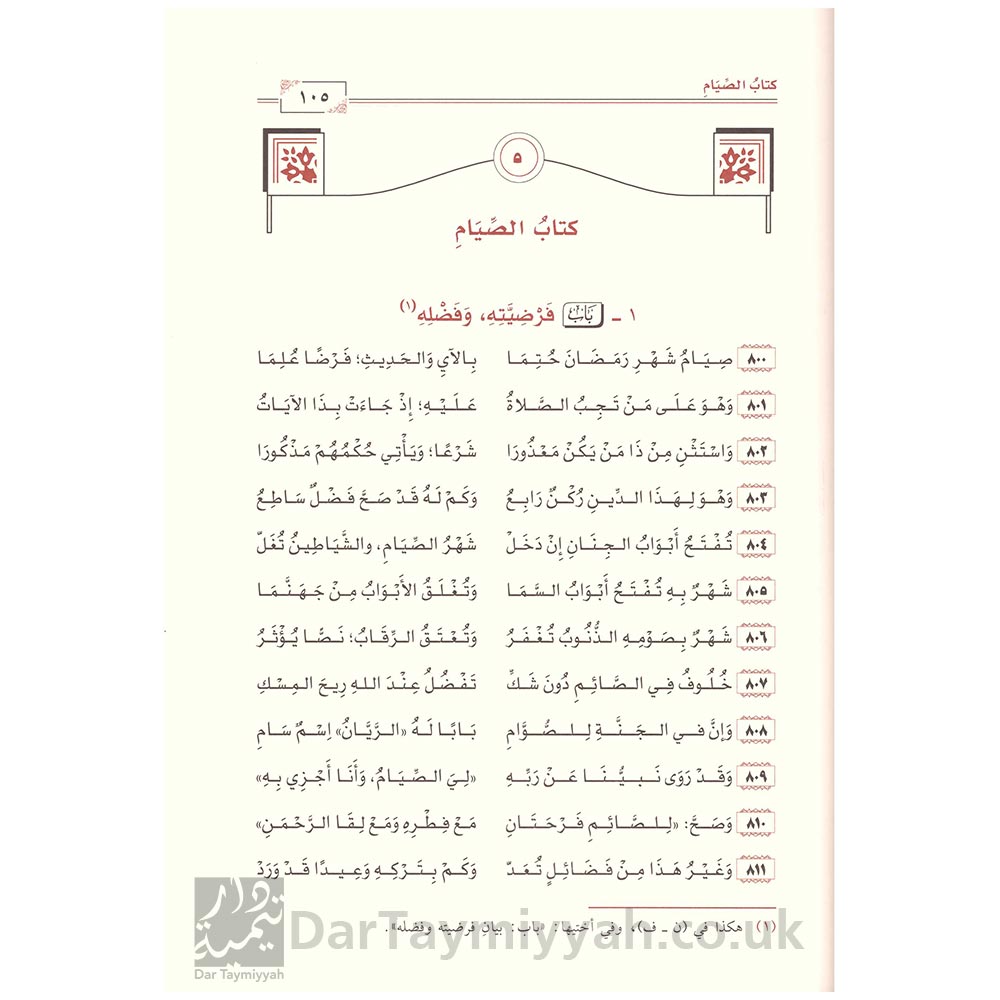 كتابُ الصِّيَامِ
١٠٥
٥
كتابُ الصِّيَامِ
١ ـ بَابُ فَرْضِيَّتِهِ، وَفَضْلِهِ(١)
٨٠٠ صِيَامُ شَهْرِ رَمَضَانَ حُتِمَا بِالآيِ وَالحَدِيثِ؛ فَرْضًا عُلِمَا
٨٠١ وَهْوَ عَلَى مَنْ تَجِبُ الصَّلَاةُ عَلَيْهِ؛ إِذْ جَاءَتْ بِذَا الآيَاتُ
٨٠٢ وَاسْتَثْنِ مِنْ ذَا مَنْ يَكُنْ مَعْذُورَا شَرْعًا؛ وَيَأْتِي حُكْمُهُمْ مَذْكُورَا
٨٠٣ وَهْوَ لِهَذَا الدِّينِ رُكْنٌ رَابِعُ وَكَمْ لَهُ قَدْ صَحَّ فَضْلٌ سَاطِعُ
٨٠٤ تُفْتَحُ أَبْوَابُ الجِنَانِ إِنْ دَخَلْ شَهْرُ الصِّيَامِ، والشَّيَاطِينُ تُغَلّْ
٨٠٥ شَهْرٌ بِهِ تُفْتَحُ أَبْوَابُ السَّمَا وَتُغْلَقُ الأَبْوَابُ مِنْ جَهَنَّمَا
٨٠٦ شَهْرٌ بِصَوْمِهِ الذُّنُوبُ تُغْفَرُ وَتُعْتَقُ الرِّقَابُ؛ نَصًّا يُؤْثَرُ
٨٠٧ خُلُوفُ فِي الصَّائِمِ دُونَ شَكِّ تَفْضُلُ عِنْدَ اللهِ رِيحَ المِسْكِ
٨٠٨ وَإِنَّ في الجَنَّةِ لِلصُّوَّامِ بَابًا لَهُ «الرَّيَّانُ» اِسْمٌ سَامِ
٨٠٩ وَقَدْ رَوَى نَبِيُّنَا عَنْ رَبِّهِ «لِيَ الصِّيَامُ، وَأَنَا أَجْزِي بِهِ»
٨١٠ وَصَحَّ: «لِلصَّائِمِ فَرْحَتَانِ مَعْ فِطْرِهِ وَمَعْ لِقَا الرَّحْمَنِ»
٨١١ وَغَيْرُ هَذَا مِنْ فَضَائِلٍ تُعَدّْ وَكَمْ بِتَرْكِهِ وَعِيدًا قَدْ وَرَدْ
(١) هكذا في (ن ـ ف)، وفي أختيها: «باب: بيان فرضيته وفضله».
DarTaymiyyah.co.uk
دار تيمية
Dar Taymiyyah